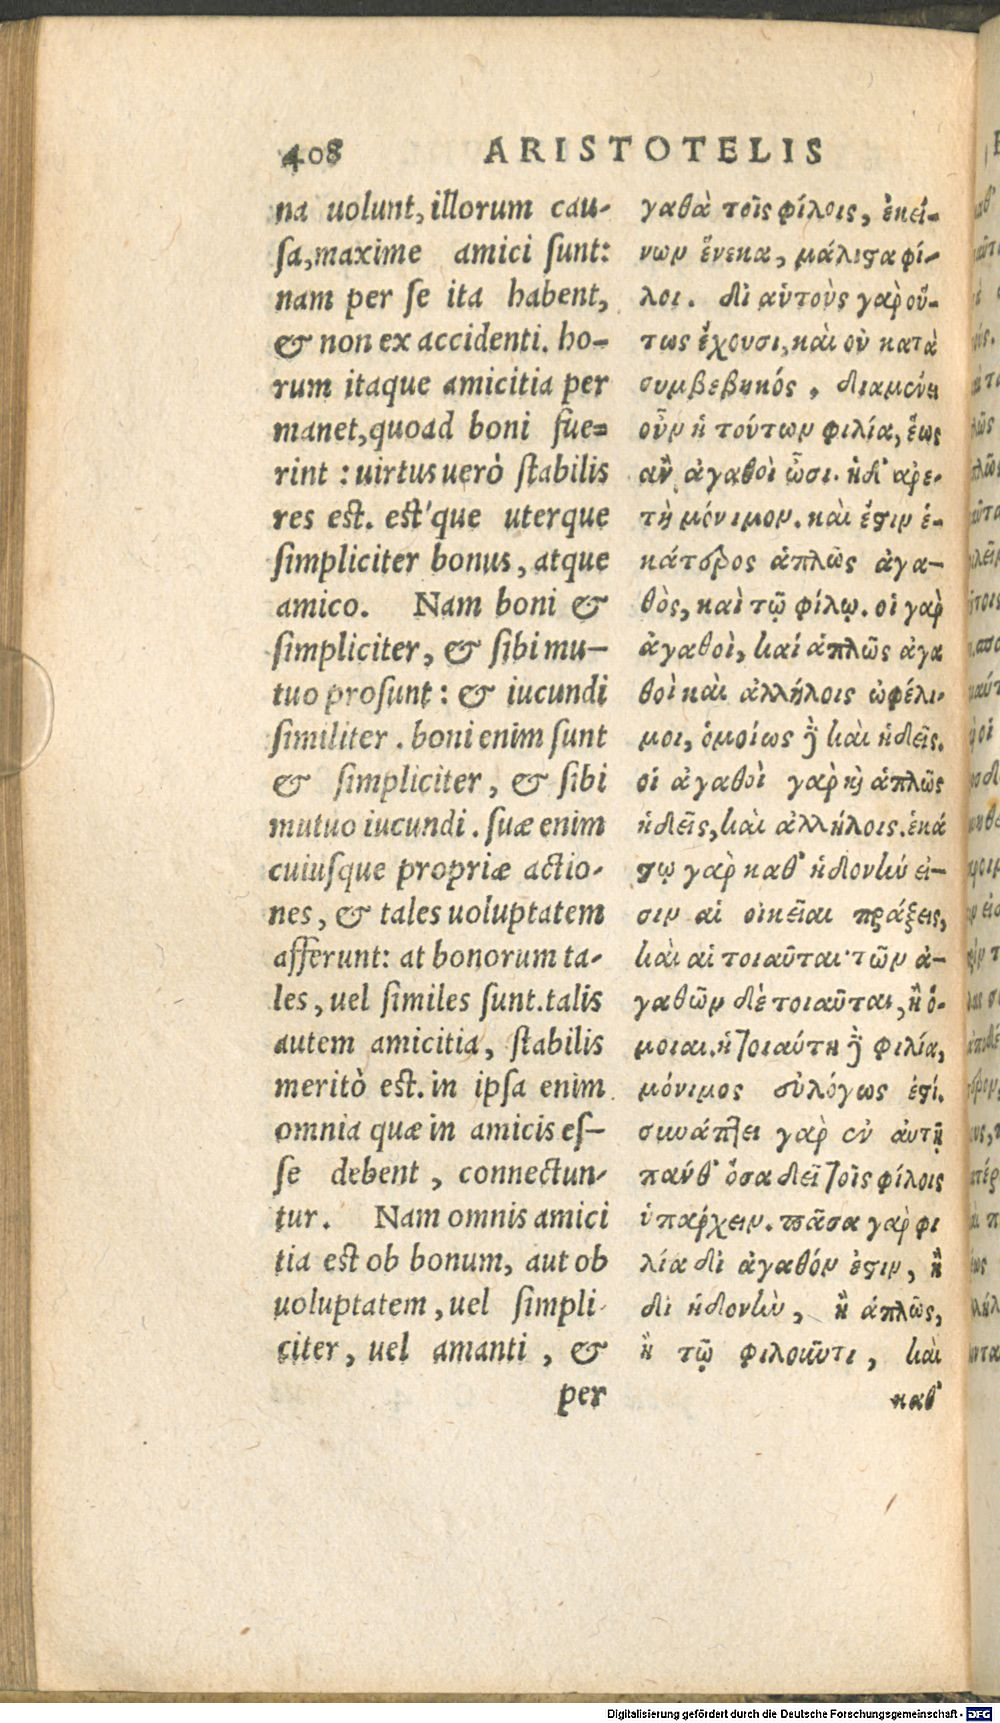 408 ARISTOTELIS
na uolunt, illorum cau-
sa, maxime amici sunt:
nam per se ita habent,
& non ex accidenti. ho-
rum itaque amicitia per
manet, quoad boni fue=
rint : uirtus uerò stabilis
res est. est'que uterque
simpliciter bonus, atque
amico. Nam boni &
simpliciter, & sibi mu-
tuo prosunt : & iucundi
similiter . boni enim sunt
& simpliciter, & sibi
mutuo iucundi . suæ enim
cuiusque propriæ actio-
nes, & tales uoluptatem
afferunt: at bonorum ta-
les, uel similes sunt. talis
autem amicitia, stabilis
meritò est. in ipsa enim
omnia quæ in amicis es-
se debent , connectun-
tur. Nam omnis amici
tia est ob bonum, aut ob
uoluptatem , uel simpli-
citer, uel amanti , &
per
γαθὰ τοῖς φίλοις, ἐκεί-
νων ἕνεκα, μάλιστα φί-
λοι. δι αὑτοὺς γὰρ οὕ-
τως ἔχουσι, καὶ οὐ κατὰ
συμβεβηκός . διαμένει
οὖν ἡ τούτων φιλία, ἕως
ἂν ἀγαθοὶ ὦσι. ἡ δ' ἀρε-
τὴ μόνιμον. καὶ ἔστιν ἑ-
κάτερος ἁπλῶς ἀγα-
θὸς, καὶ τῷ φίλῳ. οἱ γὰρ
ἀγαθοὶ, καί ἁπλῶς ἀγα
θοὶ καὶ ἀλλήλοις ὠφέλι-
μοι, ὁμοίως δὲ καὶ ἡδεῖς.
οἱ ἀγαθοὶ γὰρ καὶ ἁπλῶς
ἡδεῖς, καὶ ἀλλήλοις. ἑκά
στῳ γὰρ καθ' ἡδονὴν εἰ-
σιν αἱ οἰκεῖαι πράξεις,
καὶ αἱ τοιαῦται· τῶν ἀ-
γαθῶν δὲ τοιαῦται, ἢ ὅ-
μοιαι. ἡ τοιαύτη δὲ φιλία,
μόνιμος εὐλόγως ἐστί.
συνάπτει γὰρ ἐν αὐτῇ
πάνθ' ὅσα δεῖ τοῖς φίλοις
ὑπάρχειν. πᾶσα γὰρ φι
λία δι ἀγαθόν ἐστιν, ἢ
δι ἡδονὴν, ἢ ἁπλῶς,
ἢ τῷ φιλοῦντι, καὶ
καθ'
Digitalisierung gefördert durch die Deutsche Forschungsgemeinschaft - DFG